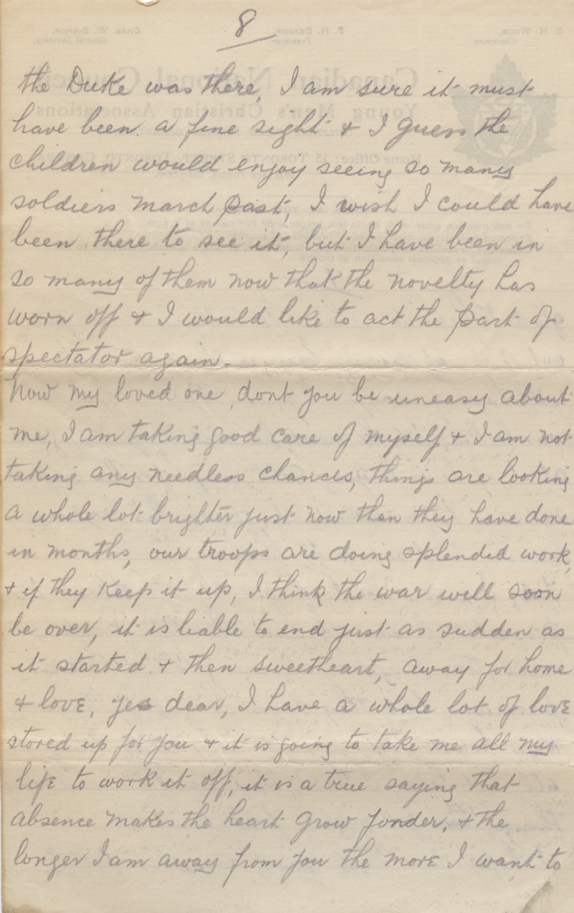 8
the Duke was there, I am sure it must
have been a fine sight & I guess the
children would enjoy seeing so many
soldiers march past, I wish I could have
been there to see it, but I have been in
so many of them now that the novelty has
worn off & I would like to act the part of
spectator again.
Now my loved one, dont you be uneasy about
me, I am taking good care of myself & I am not
taking any needless chances, things are looking
a whole lot brighter just now than they have done
in months, our troops are doing splended work,
& if they keep it up, I think the war will soon
be over, it is liable to end just as sudden as
it started & then sweetheart, away for home
& love, yes dear, I have a whole lot of love
stored up for you & it is going to take me all my
life to work it off, it is a true saying that
absence makes the heart grow fonder, & the
longer I am away from you the more I want to